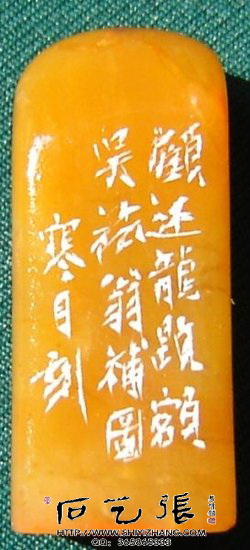 顧廷龍題額
吳祐翁補圖
寒月刻
張艺石
HTTP://WWW.SHIYIZHANG.COM
QQ: 365865333